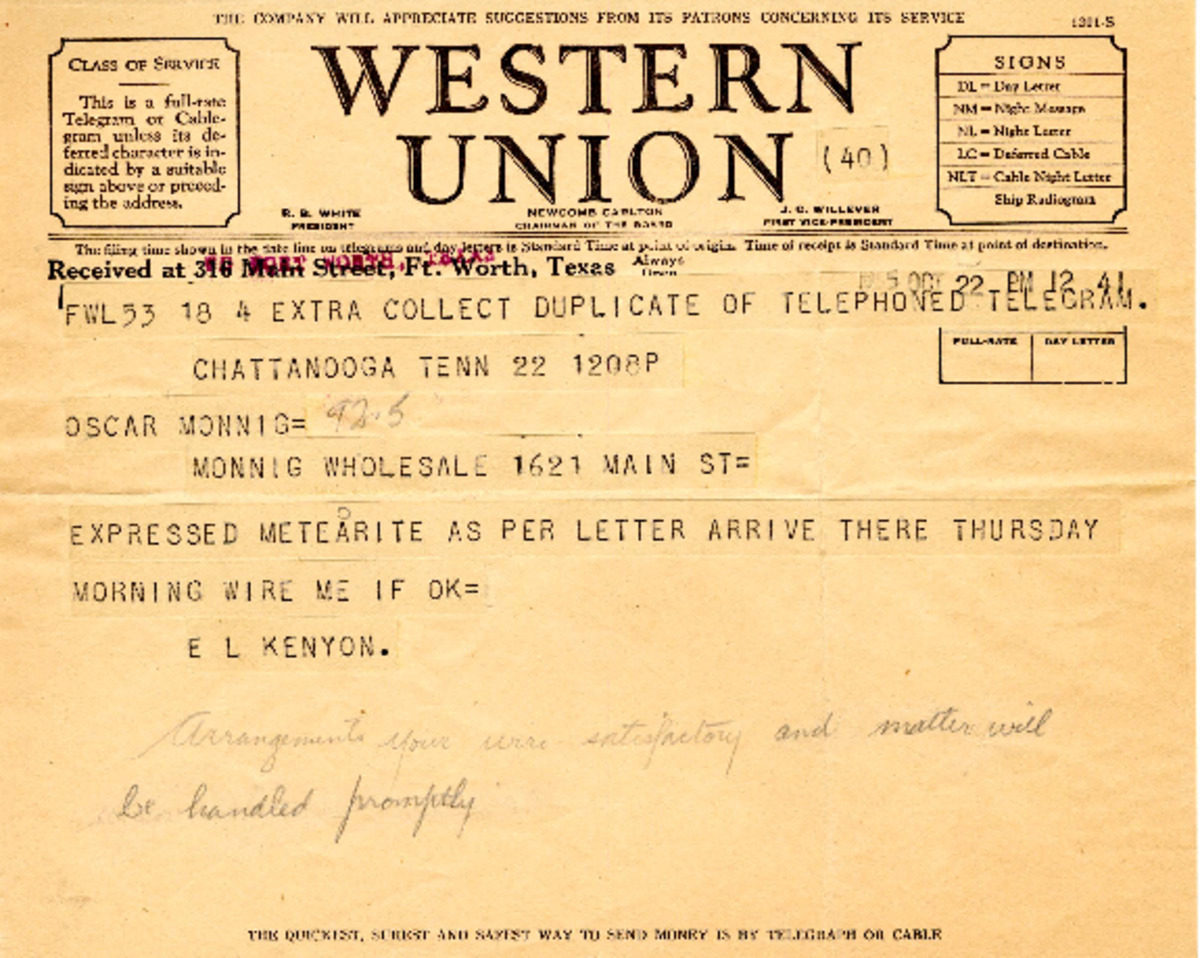 THE COMPANY WILL APPRECIATE SUGGESTIONS FROM ITS PATRONS CONCERNING ITS SERVICE
1201-S
CLASS OF SERVICE
This is a full-rate
Telegram or Cable-
gram unless its de-
ferred character is in-
dicated by a suitable
sign above or preced-
ing the address.
WESTERN
UNION
(40)
R. B. WHITE
PRESIDENT
NEWCOMB CARLTON
CHAIRMAN OF THE BOARD
J. C. WILLEVER
FIRST VICE-PRESIDENT
SIGNS
DL = Day Letter
NM = Night Message
NL = Night Letter
LC = Deferred Cable
NLT = Cable Night Letter
Ship Radiogram
The filing time shown in the date line on telegrams and day letters is Standard Time at point of origin. Time of receipt is Standard Time at point of destination.
FORT WORTH, TEXAS
Received at 316 Main Street, Ft. Worth, Texas Always Open
OCT 22 PM 12 41
FWL53 18 4 EXTRA COLLECT DUPLICATE OF TELEPHONED TELEGRAM.
FULL-RATE DAY LETTER
CHATTANOOGA TENN 22 1208P
OSCAR MONNIG= 92.5
MONNIG WHOLESALE 1621 MAIN ST=
EXPRESSED METEARITE AS PER LETTER ARRIVE THERE THURSDAY
MORNING WIRE ME IF OK=
E L KENYON.
Arrangements your wire satisfactory and matter will
be handled promptly
THE QUICKEST, SUREST AND SAFEST WAY TO SEND MONEY IS BY TELEGRAPH OR CABLE